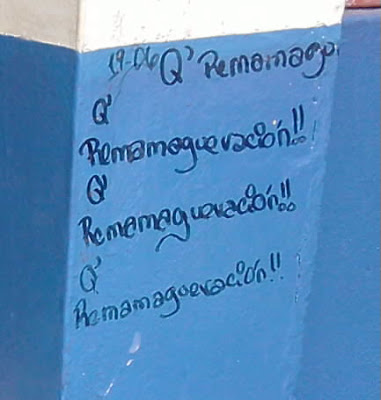 19-06 Q' Remamague
Q'
Remamaguevación!!
Q'
Remamaguevación!!
Q'
Remamaguevación!!